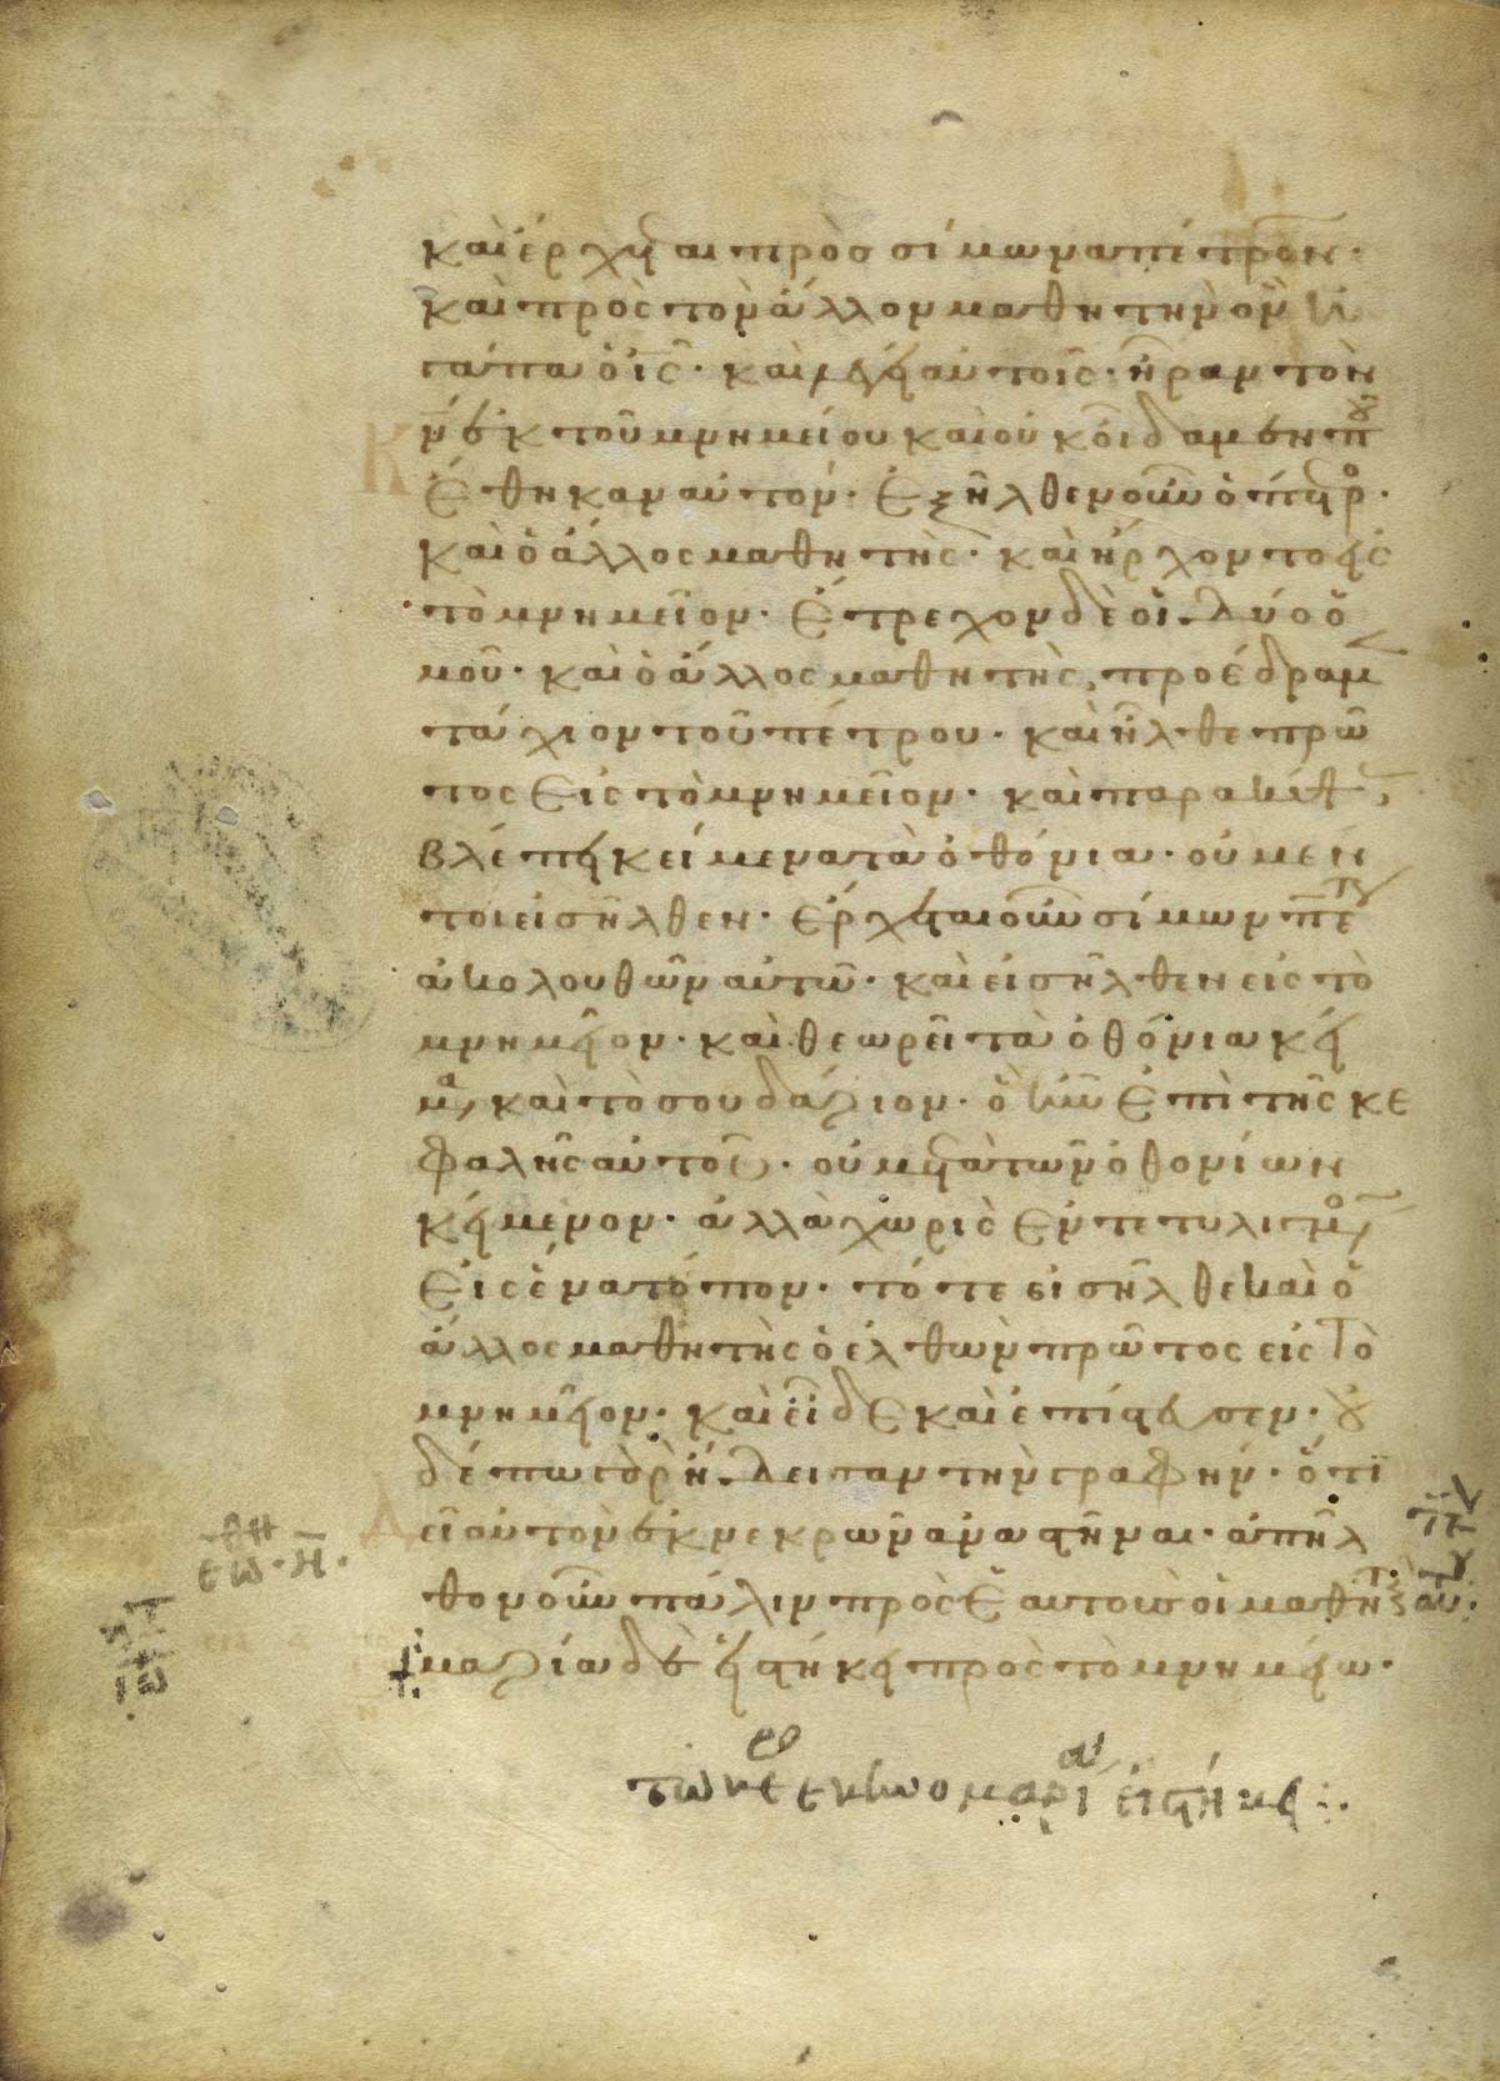 καὶ ἔρχεται πρὸσ σίμωνα πέτρον·
καὶ πρὸς τὸν ἄλλον μαθητὴν ὃν ἐ
γάπα ὁ ι̅ς̅· καὶ λέγει αὐτοῖς· ἦραν τὸν
κ̅ν̅ ἐκ τοῦ μνημείου καὶ οὐκ οἴδαμεν π̅ου
ἔθηκαν αὐτόν· Ἐξῆλθεν οὖν ὁ πέτρο·
καὶ ὁ ἄλλος μαθητὴς· καὶ ἤρχοντο εἰς
τὸ μνημεῖον· Ἔτρεχον δὲ οἱ δύο ὁ
μοῦ· καὶ ὁ ἄλλος μαθητὴς, προέδραμ
τάχιον τοῦ πέτρου· καὶ ἦλθε πρῶ
τος εἰς τὸ μνημεῖον· καὶ παρακύψ
βλέπει κείμενα τὰ ὀθόνια· οὐ μέν
τοι εἰσῆλθεν· Ἔρχεται οὖν σίμων πε
ἀκολουθῶν αὐτῶ· καὶ εἰσῆλθεν εἰς τὸ
μνημεῖον· καὶ θεωρεῖ τὰ ὀθόνια κεί
μα, καὶ τὸ σουδάριον· ὃ ἦν ἐπὶ τῆς κε
φαλῆς αὐτοῦ· οὐ μετὰ τῶν ὀθονίων
κείμενον· ἀλλὰ χωρὶς ἐντετυλιγμο
εἰς ἕνα τόπον· τότε εἰσῆλθε καὶ ὁ
ἄλλος μαθητὴς ὁ ἐλθὼν πρῶτος εἰς τὸ
μνημεῖον· καὶ εἶδε καὶ ἐπίστευσεν· οὐ
δέπω γὰρ ἤδεισαν τὴν γραφήν· ὅτι
δεῖ αὐτὸν ἐκ νεκρῶν ἀναστῆναι· ἀπῆλ
θον οὖν πάλιν πρὸς ἑαυτοὺς οἱ μαθητ
μαρία δὲ εἱστήκει πρὸς τὸ μνημείω·
ἑω· η̅·